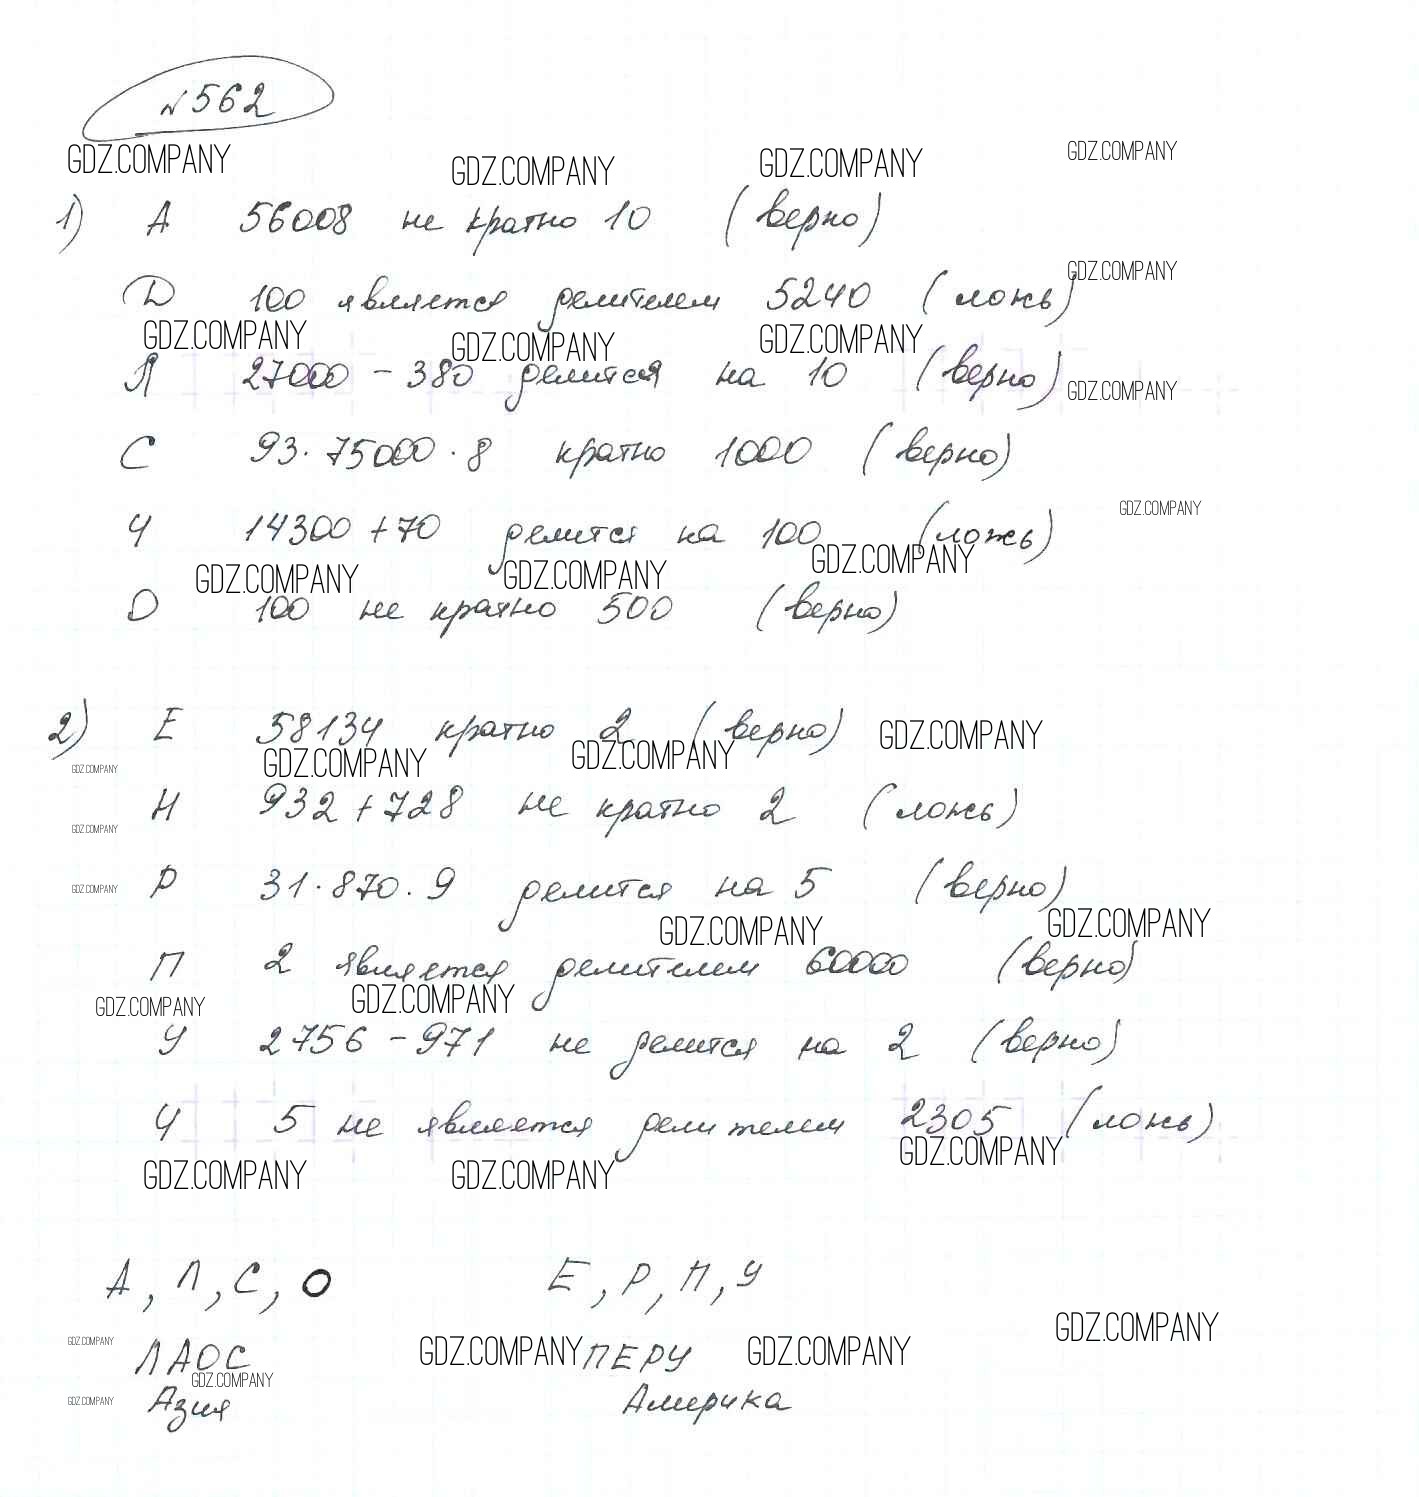 №562
GDZ.COMPANY GDZ.COMPANY GDZ.COMPANY GDZ.COMPANY
1) А 56008 не кратно 10 (верно)
GDZ.COMPANY
D 100 является делителем 5240 (ложь)
GDZ.COMPANY GDZ.COMPANY GDZ.COMPANY
Л 27000 - 380 делится на 10 (верно)
GDZ.COMPANY
С 93·75000·8 кратно 1000 (верно)
GDZ.COMPANY
Ч 14300 + 70 делится на 100 (ложь)
GDZ.COMPANY GDZ.COMPANY GDZ.COMPANY
О 100 не кратно 500 (верно)
2) Е 58134 кратно 2 (верно) GDZ.COMPANY
GDZ.COMPANY GDZ.COMPANY GDZ.COMPANY
Н 932 + 728 не кратно 2 (ложь)
GDZ.COMPANY
Р 31·870·9 делится на 5 (верно)
GDZ.COMPANY GDZ.COMPANY GDZ.COMPANY
П 2 является делителем 60000 (верно)
GDZ.COMPANY GDZ.COMPANY
У 2756 - 971 не делится на 2 (верно)
Ч 5 не является делителем 2305 (ложь)
GDZ.COMPANY GDZ.COMPANY GDZ.COMPANY
А, Л, С, О Е, Р, П, У
GDZ.COMPANY GDZ.COMPANY
ЛАОС GDZ.COMPANY ПЕРУ GDZ.COMPANY
GDZ.COMPANY GDZ.COMPANY
Азия Америка